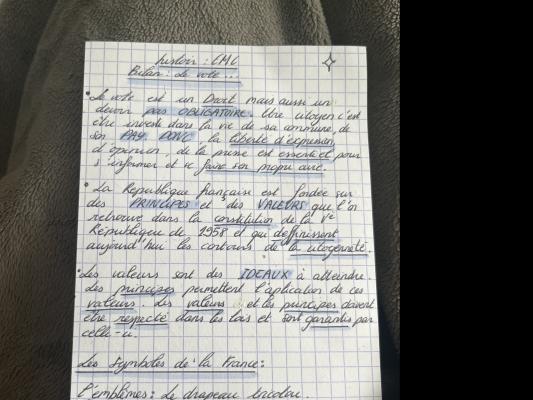 histoir : EMC
Bilan : Le vote...
• Le vote est un Droit mais aussi un
devoir pas OBLIGATOIRE. Être citoyen c'est
être investi dans la vie de sa commune, de
son PAY DONC la liberté d'expression,
d'opinion, de la presse est essentiel pour
s'informer et se faire son propre avis.
• La République française est fondée sur
des PRINCIPES et des VALEURS que l'on
retrouve dans la constitution de la Ve
République de 1958 et qui définissent
aujourd'hui les contours de la citoyenneté.
• Les valeurs sont des IDEAUX à atteindre.
Les principes permettent l'aplication de ces
valeurs. Les valeurs et les principes doivent
être respecté dans les lois et sont garantis par
celle-ci.
Les Symboles de la France :
l'emblèmes : Le drapeau tricolor.